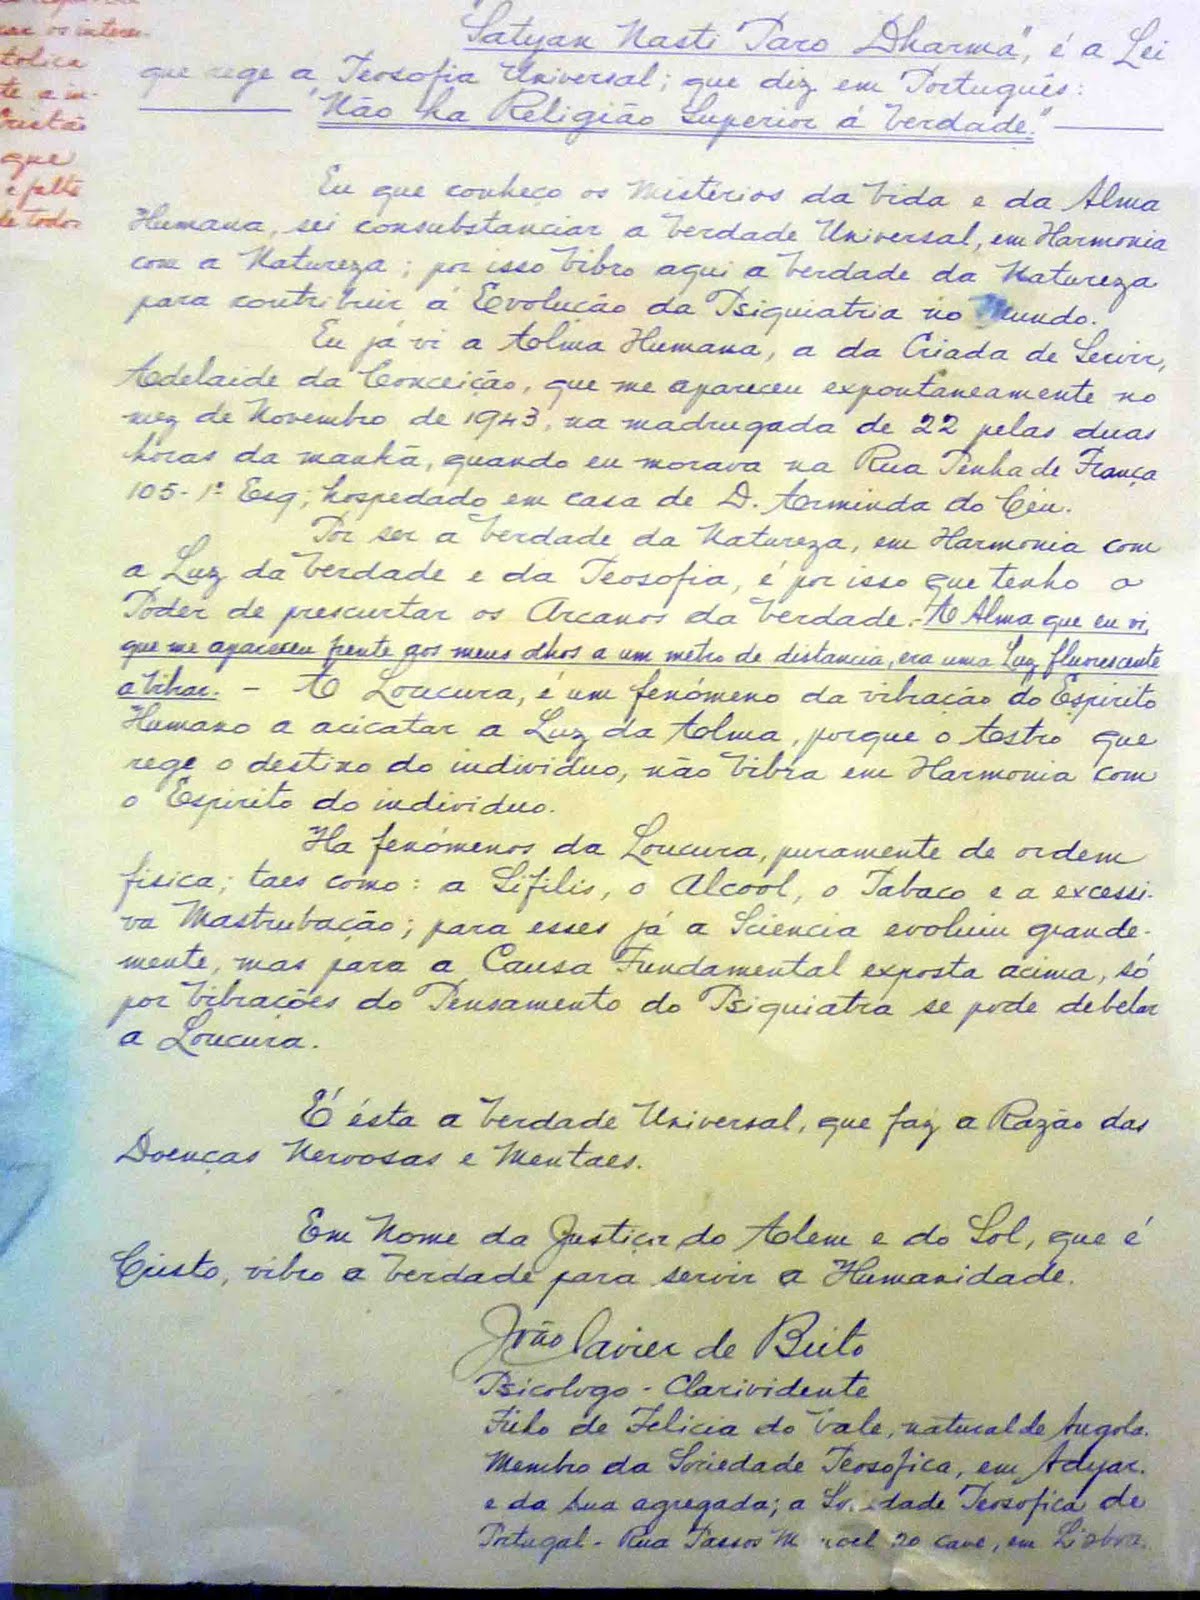 car os interes-
tolica
te a in-
Cristã
que
e falta
de todos
"Satyan Nasti Paro Dharma", é a Lei
que rege a Teosofia Universal; que diz em Português:
"Não ha Religião Superior á Verdade."
Eu que conheço os Mistérios da Vida e da Alma
Humana, sei consubstanciar a Verdade Universal, em Harmonia
com a Natureza; por isso Vibro aqui a Verdade da Natureza
para contribuir á Evolução da Psiquiatria no Mundo.
Eu já vi a Alma Humana, a da Criada de Servir,
Adelaide da Conceição, que me apareceu expontaneamente no
mez de Novembro de 1943, na madrugada de 22 pelas duas
horas da manhã, quando eu morava na Rua Penha de França
105-1º Esq; hospedado em casa de D. Arminda do Céu.
Por ser a Verdade da Natureza, em Harmonia com
a Luz da Verdade e da Teosofia, é por isso que tenho o
Poder de prescurtar os Arcanos da Verdade.- A Alma que eu vi,
que me apareceu frente aos meus olhos a um metro de distancia, era uma Luz fluorescente
a vibrar. - A Loucura, é um fenómeno da vibração do Espirito
Humano a acicatar a Luz da Alma, porque o Astro que
rege o destino do individuo, não Vibra em Harmonia com
o Espirito do individuo.
Ha fenómenos da Loucura, puramente de ordem
fisica; taes como: a Sifilis, o Alcool, o Tabaco e a excessi-
va Mastrubação; para esses já a Sciencia evoluiu grande-
mente, mas para a Causa Fundamental exposta acima, só
por Vibrações do Pensamento do Psiquiatra se pode debelar
a Loucura.
É ésta a Verdade Universal, que faz a Razão das
Doenças Nervosas e Mentaes.
Em Nome da Justiça do Alem e do Sol, que é
Cristo, vibro a Verdade para servir a Humanidade.
João Xavier de Brito
Psicologo - Clarividente
Filho de Felicia do Vale, natural de Angola.
Membro da Sociedade Teosofica, em Adyar.
e da sua agregada; a Sociedade Teosofica de
Portugal - Rua Passos Manoel 20 cave, em Lisboa.